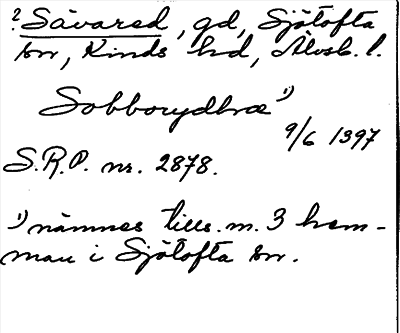 ? Såvared, gd, Sjötofta
sn, Kinds hd, Älvsb. l.
Sobborydhræ 1)
9/6 1397
S.R.P. nr. 2878.
1) nämnes tills. m. 3 hem-
man i Sjötofta sn.